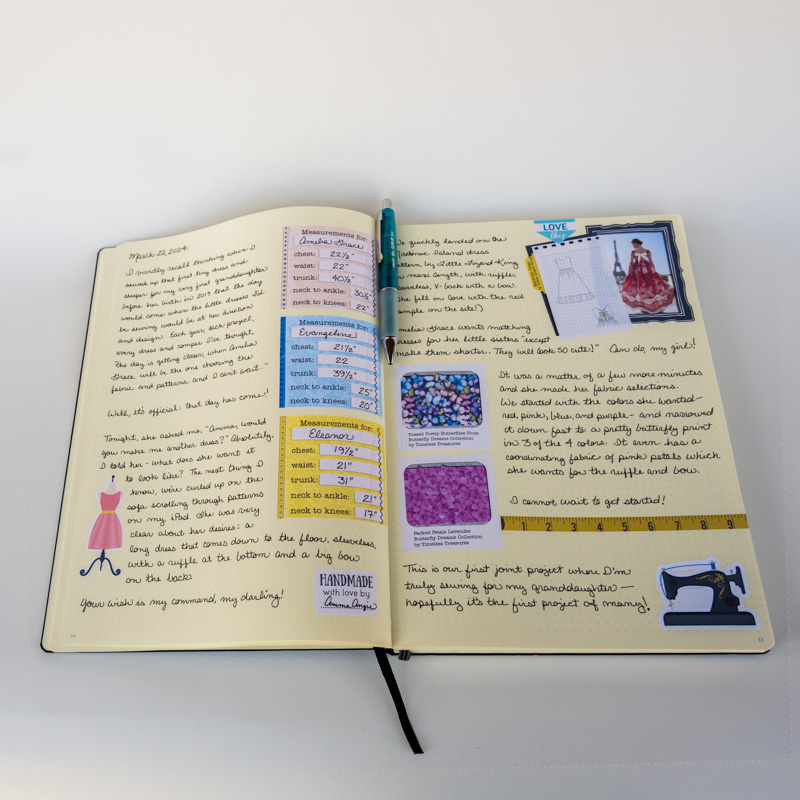 March 22, 2024:
I vividly recall thinking when I
sewed up that first tiny dress and
before her birth in 2017 that the day
would come when the little dresses I'd
be sewing would be at her direction
and design. Each year, each project,
every dress and romper I've thought,
"the day is getting closer, when Amelia
Grace will be the one choosing the
fabric and patterns, and I can't wait..."
Well, it's official: that day has come!
Tonight, she asked me, "Amma, would
you make me another dress?" Absolutely,
I told her - what does she want it
to look like? The next thing I
know, we're curled up on the
sofa scrolling through patterns
on my iPad. She was very
clear about her desires: a
long dress that comes down to the floor, sleeveless,
with a ruffle at the bottom and a big bow
on the back.
Your wish is my command, my darling!
Measurements for:
Amelia Grace
chest: 22½"
waist: 22"
trunk: 40½"
neck to ankle: 30½"
neck to knees: 22"
Measurements for:
Evangeline
chest: 21½"
waist: 22
trunk: 39½"
neck to ankle: 25"
neck to knees: 20"
Measurements for:
Eleanor
chest: 19½"
waist: 21"
trunk: 31"
neck to ankle: 21"
neck to knees: 17"
HANDMADE
with love by
Amma Angie
quickly landed on the
Island dress
pattern by Little Lizard King
maxi length, with ruffle,
sleeveless, V-back with a bow.
She fell in love with the red
sample on the site!)
LOVE
this
Amelia Grace wants matching
dresses for her little sisters "except
make them shorter. They will look SO cute!" Can do, my girl!
It was a matter of a few more minutes
and she made her fabric selections.
We started with the colors she wanted-
red, pink, blue, and purple - and narrowed
it down fast to a pretty butterfly print
in 3 of the 4 colors. It even has a
coordinating fabric of pink petals which
she wants for the ruffle and bow.
I cannot wait to get started!
Tossed Pretty Butterflies Plum
Butterfly Dreams Collection
by Timeless Treasures
Packed Petals Lavender
Butterfly Dreams Collection
by Timeless Treasures
1 2 3 4 5 6 7 8 9
This is our first joint project where I'm
truly sewing for my granddaughter -
hopefully it's the first project of many!